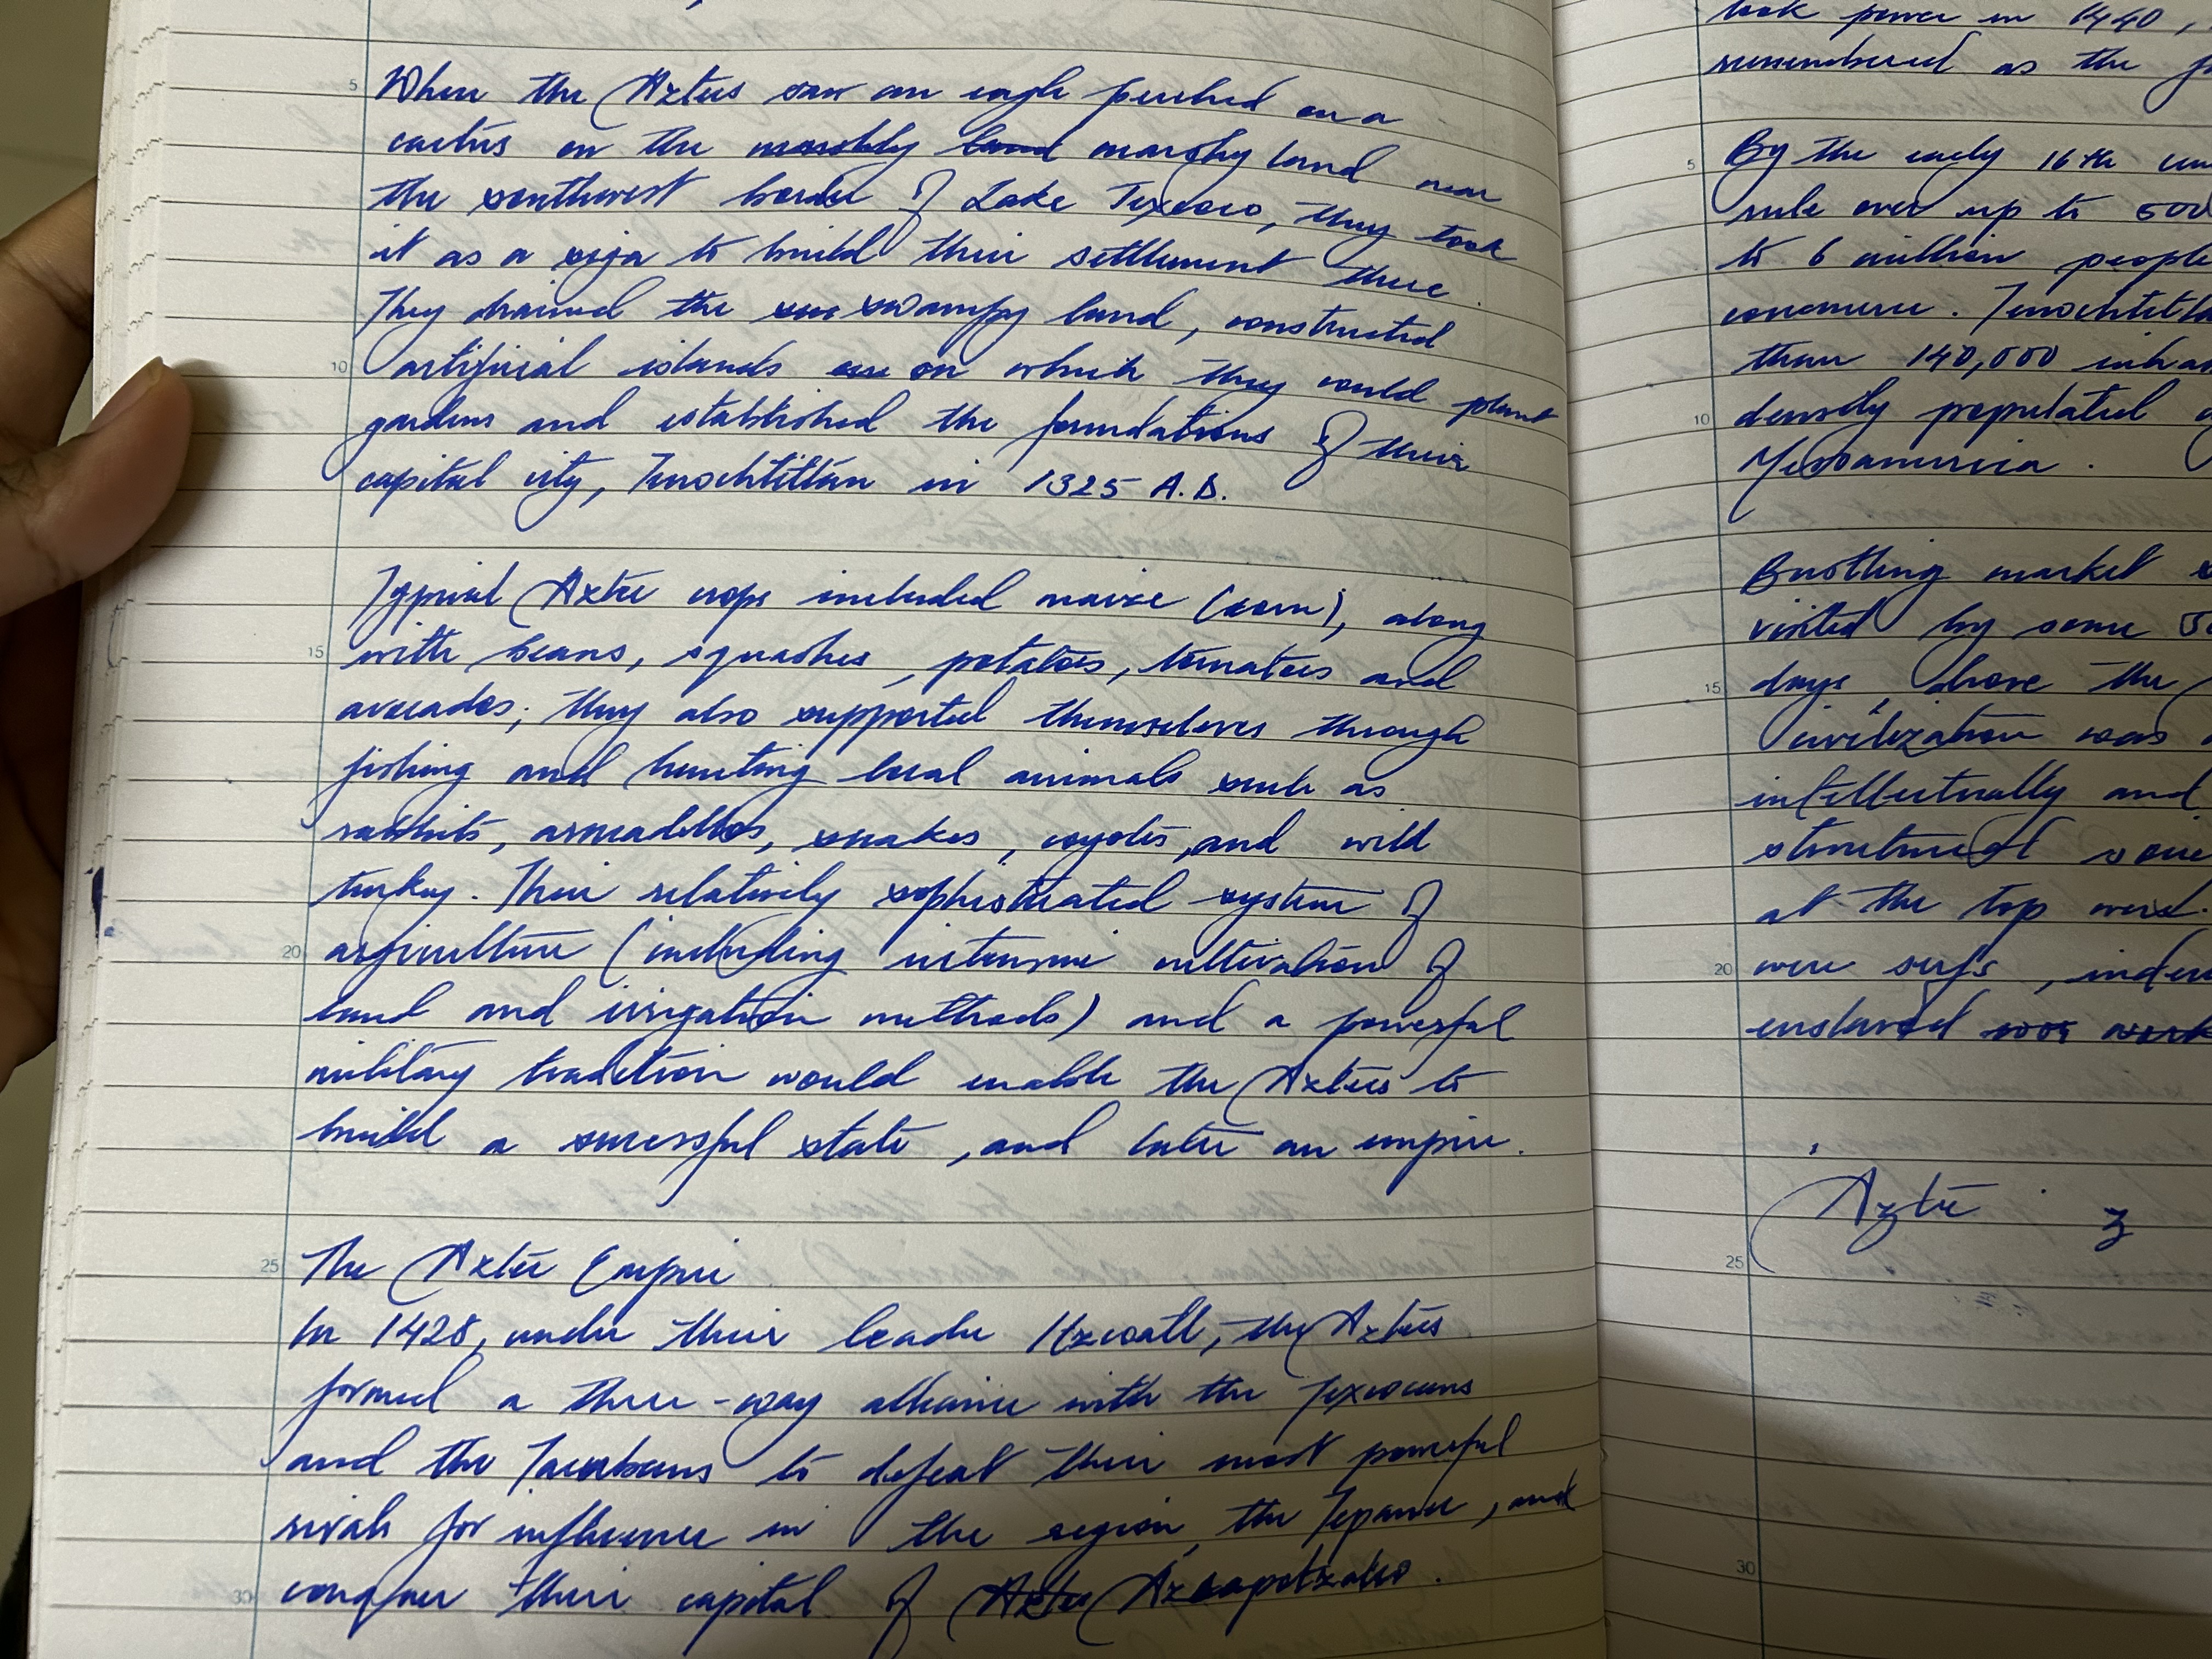 When the Aztecs saw an eagle perched on a
cactus on the marshy land near
the southwest border of Lake Texcoco, they took
it as a sign to build their settlement there.
They drained the swampy land, constructed
artificial islands on which they could plant
gardens and established the foundations of their
capital city, Tenochtitlán in 1325 A.D.
Typical Aztec crops included maize (corn), along
with beans, squashes, potatoes, tomatoes and
avocados; they also supported themselves through
fishing and hunting local animals such as
rabbits, armadillos, snakes, coyotes, and wild
turkey. Their relatively sophisticated system of
agriculture (including intensive cultivation of
land and irrigation methods) and a powerful
military tradition would enable the Aztecs to
build a successful state, and later an empire.
The Aztec Empire
In 1428, under their leader Itzcoatl, the Aztecs
formed a three-way alliance with the Texcocans
and the Tacubans to defeat their most powerful
rivals for influence in the region, the Tepanec, and
conquer their capital of Azcapotzalco.
took power in 1440,
remembered as the
By the early 16th
rule over up to 500
to 6 million people
commerce. Tenochtitl
than 140,000
densely populated
Mesoamerica.
Bustling market
visited by some
days, drove the
civilization was
intellectually and
structured
at the top were
were serfs,
enslaved
Aztec
5
10
15
20
25
30
5
10
15
20
25
30